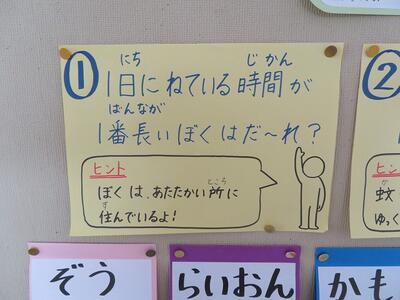 ①
にち じかん
1日にねている時間が
ばんなが
1番長いぼくはだ〜れ？
ヒント
ところ
ぼくは、あたたかい所に
す
住んでいるよ!
②
か
蚊
ゆっく
ぞう
らいおん
かも